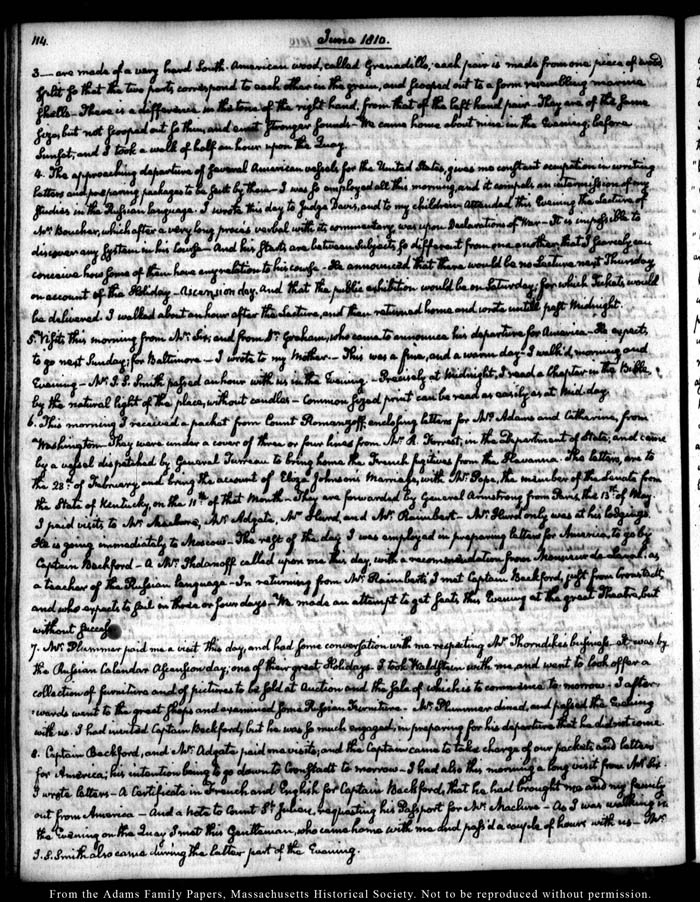 114.
June 1810.
3— are made of a very hard South-American wood, called Grenadillo, each pair is made from one piece of wood
split so that the two parts correspond to each other in the grain, and scooped out to a form resembling marine
shells— There is a difference in the tone of the right hand, from that of the left hand pair— They are of the same
size, but not scooped out so thin, and emit stronger sounds— We came home about nine in the Evening, before
Sunset, and I took a walk of half an hour upon the Quay.
4. The approaching departure of several American vessels for the United States, gives me constant occupation in writing
letters and preparing packages to be sent by them— I was so employed all this morning, and it compels an intermission of my
Studies in the Russian language. I wrote this day to Judge Davis, and to my children. Attended this Evening the Lecture of
Mr. Boucher, which after a very long procès verbal with its commentary, was upon Declarations of War— It is impossible to
discover any System in his Course— And his starts are between Subjects so different from one another, that I scarcely can
conceive how some of them have any relation to his course. He announced that there would be no Lecture next Thursday
on account of the Holiday— Ascension day. And that the public exhibition would be on Saturday; for which Tickets would
be delivered. I walked about an hour after the Lecture, and then returned home and wrote untill past Midnight.
5. Visits this morning from Mr. Six, and from Dr. Graham, who came to announce his departure for America— He expects
to go next Sunday; for Baltimore— I wrote to my Mother.— This was a fine, and a warm day— I walk'd morning and
Evening— Mr. J. S. Smith passed an hour with us in the Evening— Precisely at Midnight, I read a Chapter in the Bible,
by the natural light of the place, without candles— Common sized print can be read as easily as at Mid-day.
6. This morning I received a packet from Count Romanzoff, enclosing letters for Mrs. Adams and Catherine, from
Washington. They were under a cover of three or four lines from Mr. R. Forrest, in the Department of State; and came
by a vessel dispatched by General Turreau to bring home the French fugitives from the Havanna. The letters, are to
the 28th. of February, and bring the account of Eliza Johnson's Marriage, with Mr. Pope, the member of the Senate from
the State of Kentucky, on the 11th. of that Month— They are forwarded by General Armstrong from Paris, the 13th. of May.
I paid visits to Mr. Adgate, Mr. Hurd, and Mr. Raimbert— Mr. Hurd only was at his lodgings.
He is going immediately to Moscow. The rest of the day I was employed in preparing letters for America, to go by
Captain Beckford— A Mr. Fhdanoff called upon me this day, with a recommendation from Monsieur de Laval, as
a teacher of the Russian language— In returning from Mr. Raimbert's I met Captain Beckford, just from Cronstadt,
and who expects to sail in three or four days— We made an attempt to get seats this Evening at the great Theatre, but
without success
7. Mr. Plummer paid me a visit this day, and had some conversation with me respecting Mr. Thorndike's business. It was by
the Russian Calendar Ascension day; one of their great Holidays. I took Waldstein with me, and went to look after a
collection of furniture and of pictures to be sold at Auction and the sale of which is to commence to-morrow. I after-
wards went to the great shops and examined some Russian Furniture. Mr. Plummer dined, and passed the Evening
with us. I had invited Captain Beckford; but he was so much engaged, in preparing for his departure that he did not come.
8. Captain Beckford, and Mr. Adgate paid me visits; and the Captain came to take charge of our packets and letters
for America; his intention being to go down to Cronstadt to morrow— I had also this morning a long visit from Mr. Six.
I wrote letters— A Certificate in French and English for Captain Beckford, that he had brought me and my family
out from America— And a note to Count St. Julien, requesting his Passport for Mr. Maclure— As I was walking in
the Evening on the Quay I met this Gentleman, who came home with me and pass'd a couple of hours with us— Mr.
J. S. Smith also came during the latter part of the Evening.
From the Adams Family Papers, Massachusetts Historical Society. Not to be reproduced without permission.